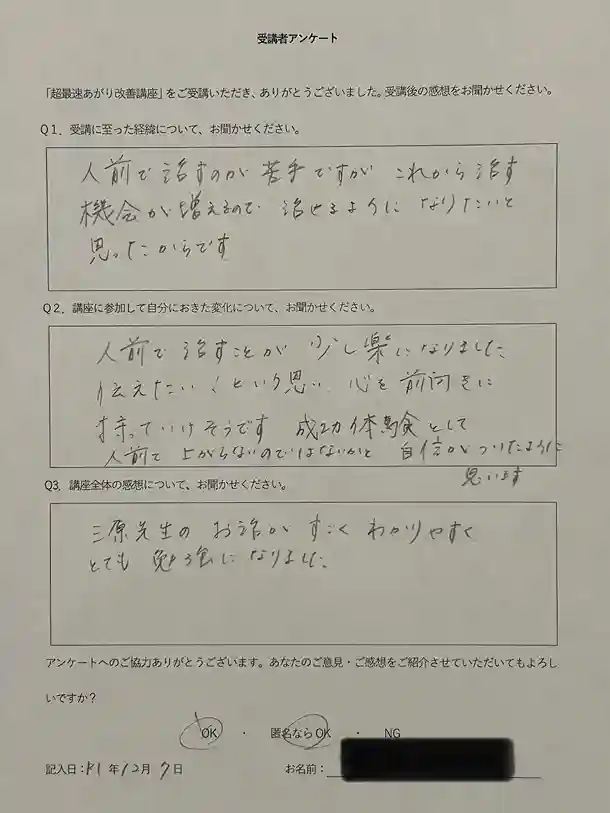 受講者アンケート
「超最速あがり改善講座」をご受講いただき、ありがとうございました。受講後の感想をお聞かせください。
Q1．受講に至った経緯について、お聞かせください。
人前で話すのが苦手ですが これから話す
機会が増えるので 話せるように なりたいと
思ったからです
Q2．講座に参加して自分におきた変化について、お聞かせください。
人前で話すことが 少し楽になりました
伝えたい という思い 心を 前向きに
持っていけそうです 成功体験として
人前で 上がらないのではないかと 自信がついたように
思います
Q3．講座全体の感想について、お聞かせください。
三原先生の お話が すごく わかりやすく
とても 勉強になりました
アンケートへのご協力ありがとうございます。あなたのご意見・ご感想をご紹介させていただいてもよろし
いですか？
OK ・ 匿名ならOK ・ NG
記入日：R1年12月7日 お名前：